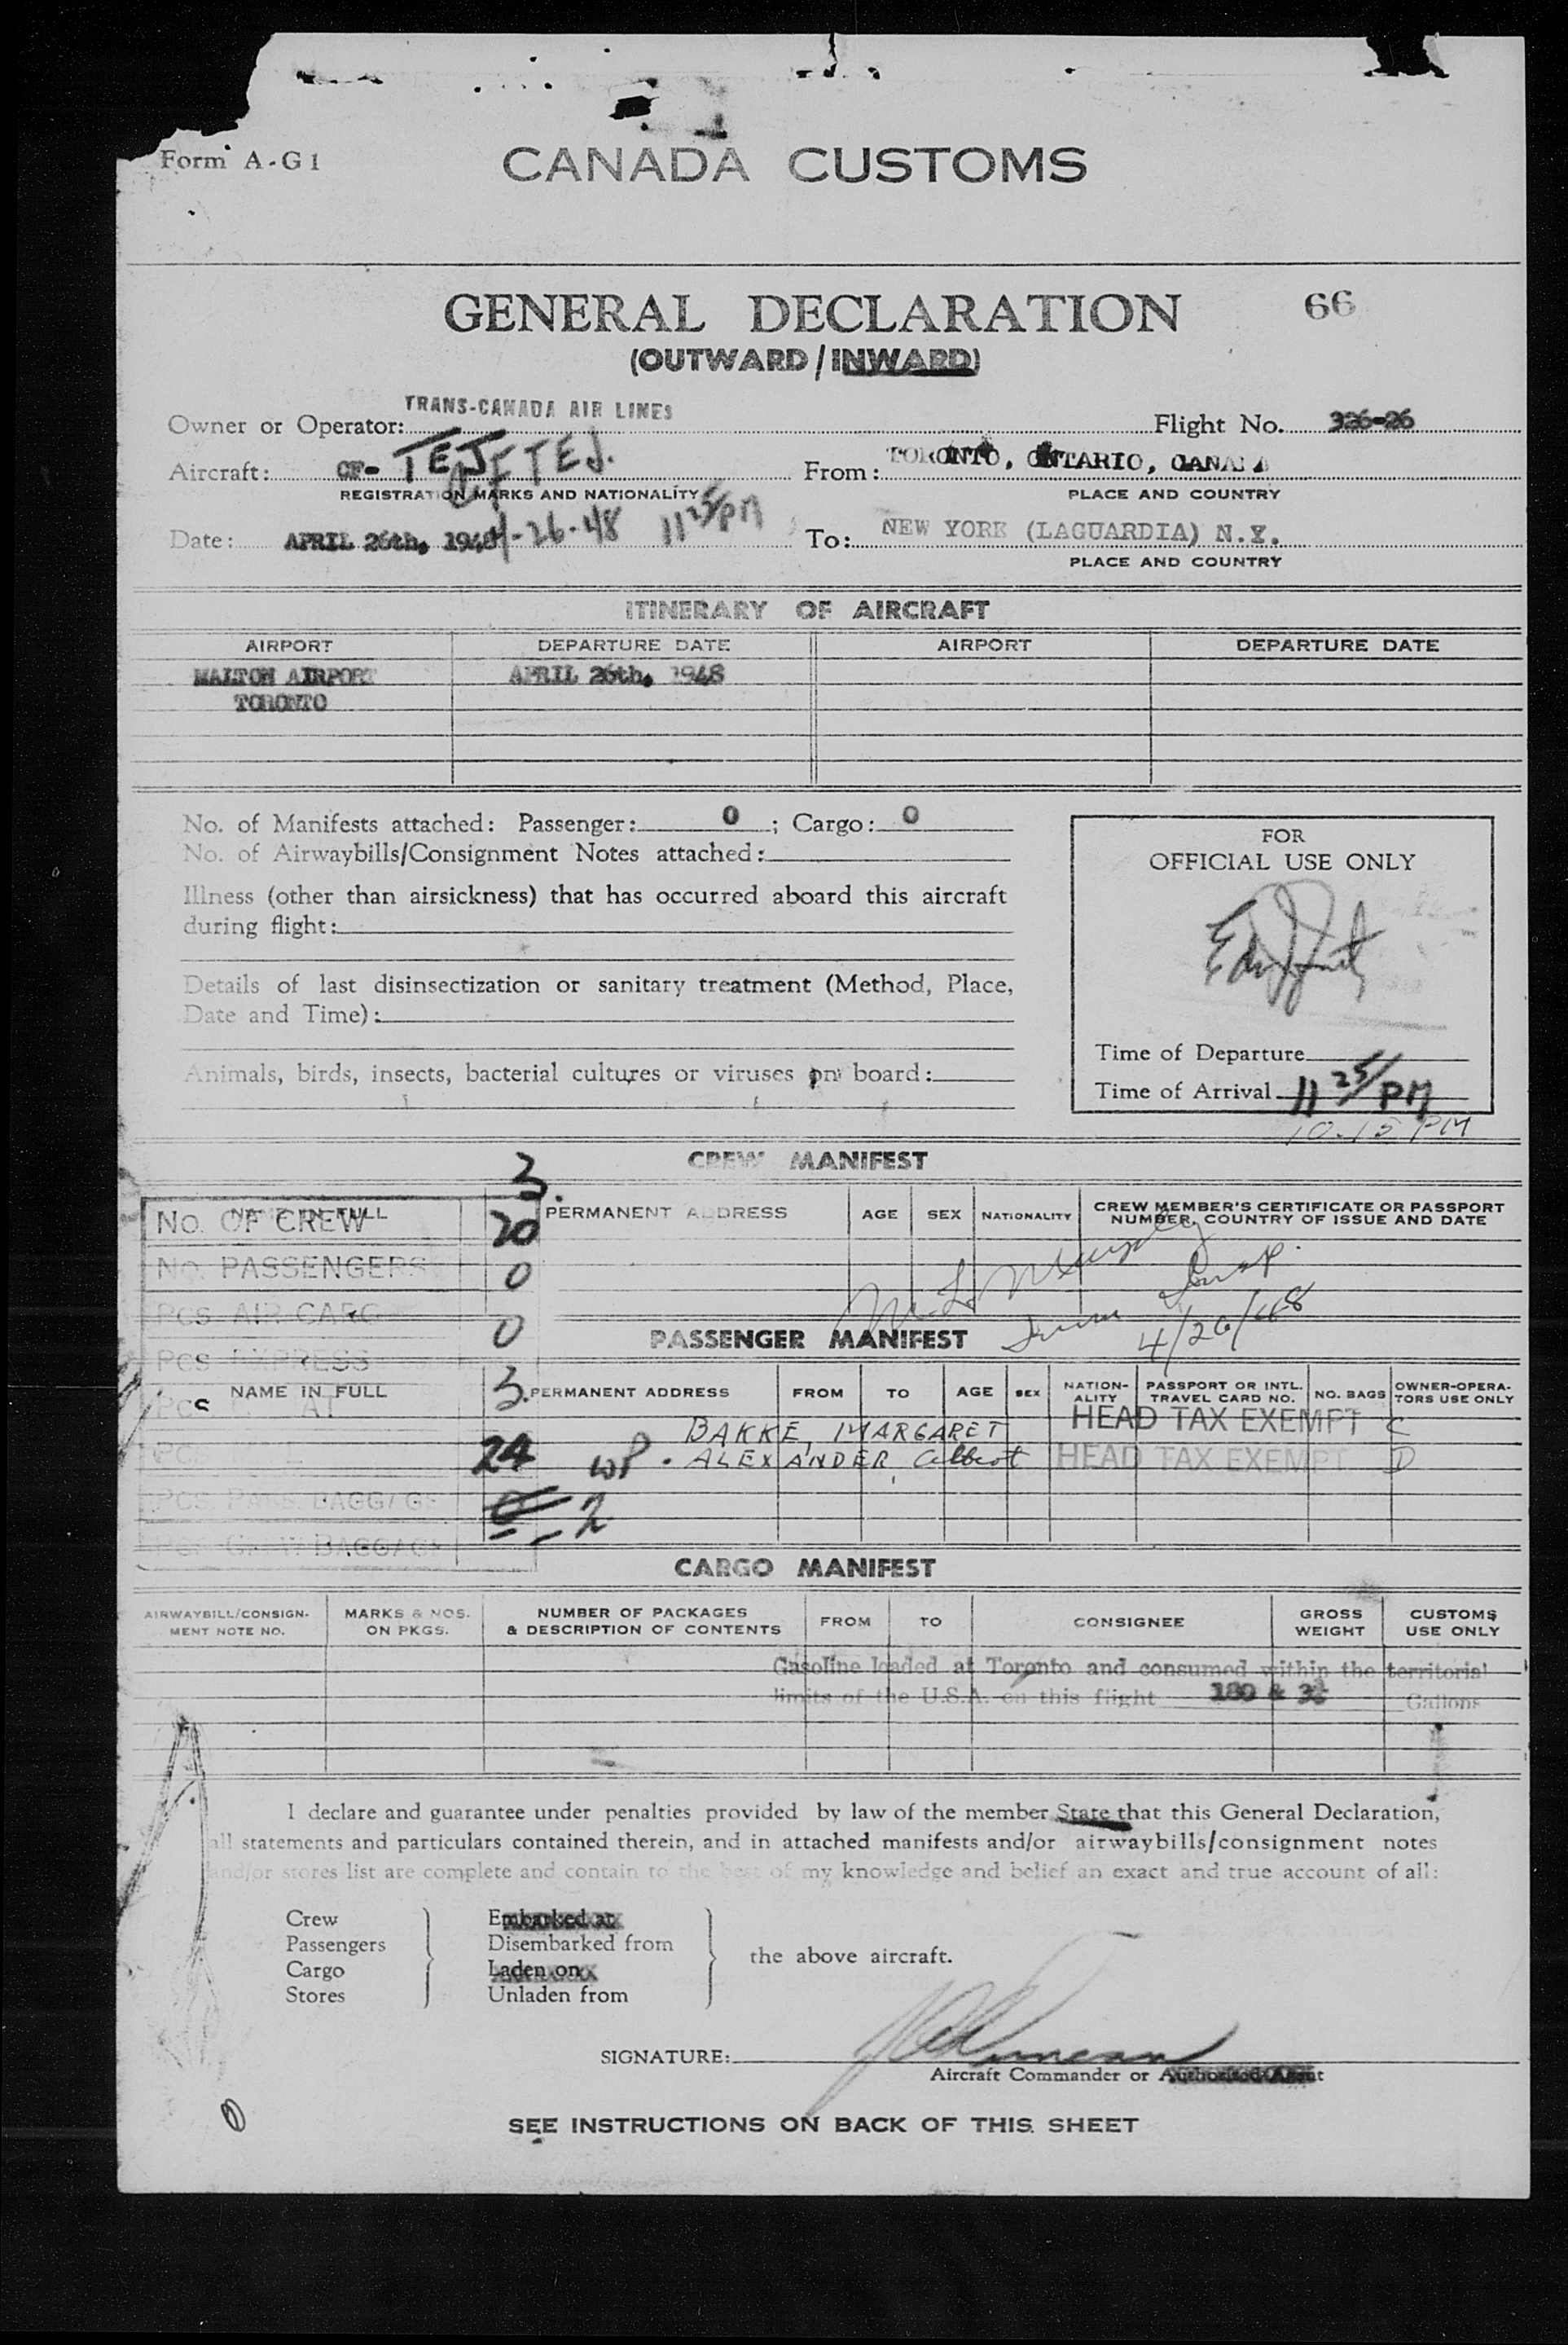 Form A-G1
CANADA CUSTOMS
GENERAL DECLARATION 66
(OUTWARD/INWARD)
TRANS-CANADA AIR LINES
Owner or Operator: Flight No. 326-26
Aircraft: CF- TEJ CF TEJ. From: TORONTO, ONTARIO, CANADA
REGISTRATION MARKS AND NATIONALITY PLACE AND COUNTRY
Date: APRIL 26th, 1948 4-26-48 11 25/PM To: NEW YORK (LAGUARDIA) N.Y.
PLACE AND COUNTRY
ITINERARY OF AIRCRAFT
AIRPORT DEPARTURE DATE AIRPORT DEPARTURE DATE
MALTON AIRPORT APRIL 26th, 1948
TORONTO
No. of Manifests attached: Passenger: 0 ; Cargo: 0
No. of Airwaybills/Consignment Notes attached:
Illness (other than airsickness) that has occurred aboard this aircraft
during flight:
Details of last disinsectization or sanitary treatment (Method, Place,
Date and Time):
Animals, birds, insects, bacterial cultures or viruses on board:
FOR
OFFICIAL USE ONLY
Time of Departure
Time of Arrival 11 25/PM
10.15 PM
CREW MANIFEST
NAME IN FULL PERMANENT ADDRESS AGE SEX NATIONALITY CREW MEMBER'S CERTIFICATE OR PASSPORT
NUMBER, COUNTRY OF ISSUE AND DATE
No. OF CREW 3.
No. PASSENGERS 20
Pcs. AIR CARGO 0
Pcs EXPRESS 0
Pcs 3.
24
Pcs. PASS. BAGGAGE
Pcs. CREW BAGGAGE 2
M. L. Murphy
Imm Insp.
4/26/48
PASSENGER MANIFEST
NAME IN FULL PERMANENT ADDRESS FROM TO AGE SEX NATION-
ALITY PASSPORT OR INTL.
TRAVEL CARD NO. NO. BAGS OWNER-OPERA-
TORS USE ONLY
BAKKE, MARGARET HEAD TAX EXEMPT C
WP . ALEXANDER, Albert HEAD TAX EXEMPT D
CARGO MANIFEST
AIRWAYBILL/CONSIGN-
MENT NOTE NO. MARKS & NOS.
ON PKGS. NUMBER OF PACKAGES
& DESCRIPTION OF CONTENTS FROM TO CONSIGNEE GROSS
WEIGHT CUSTOMS
USE ONLY
Gasoline loaded at Toronto and consumed within the territorial
limits of the U.S.A. on this flight 180 & 3½ Gallons
I declare and guarantee under penalties provided by law of the member State that this General Declaration,
all statements and particulars contained therein, and in attached manifests and/or airwaybills/consignment notes
and/or stores list are complete and contain to the best of my knowledge and belief an exact and true account of all:
Crew Embarked at
Passengers Disembarked from
the above aircraft.
Cargo Laden on
Stores Unladen from
SIGNATURE:
Aircraft Commander or Authorized Agent
0
SEE INSTRUCTIONS ON BACK OF THIS SHEET